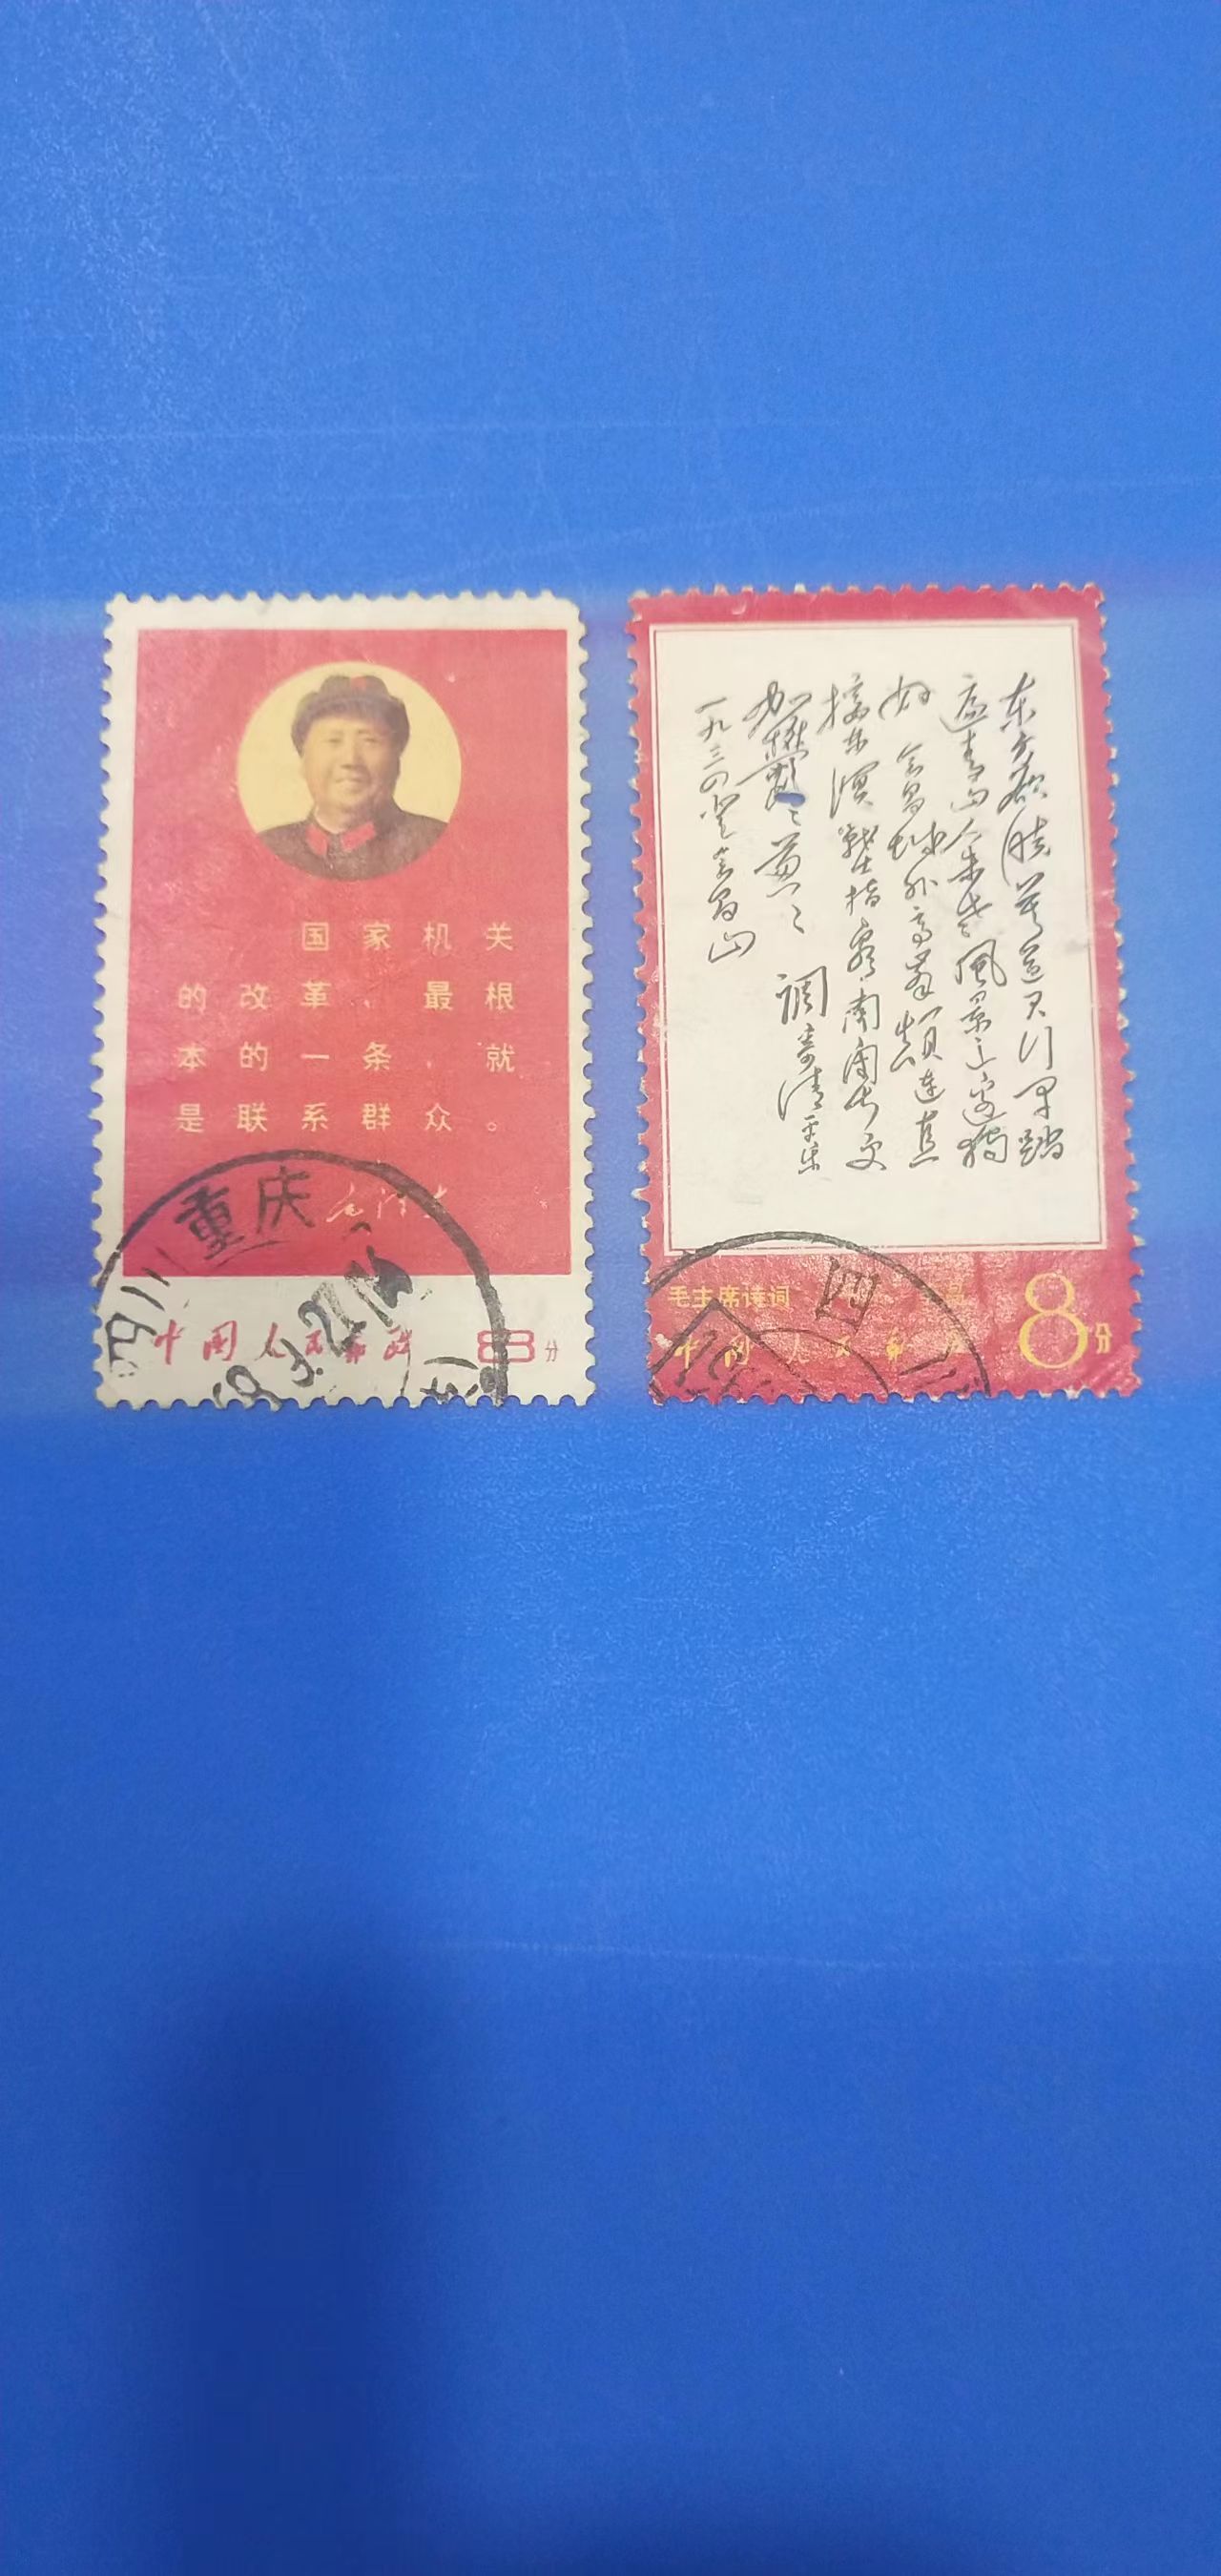 国家机关
的改革，最根
本的一条，就
是联系群众。
毛泽东
重庆
中国人民邮政 8分
东方欲晓莫道君行早踏
遍青山人未老风景这边独
好 会昌城外高峰颠连直
接东溟战士指看南粤更
加郁郁葱葱 调寄清平乐
一九三四登会昌山
毛主席诗词
四
中国人民邮政
8分